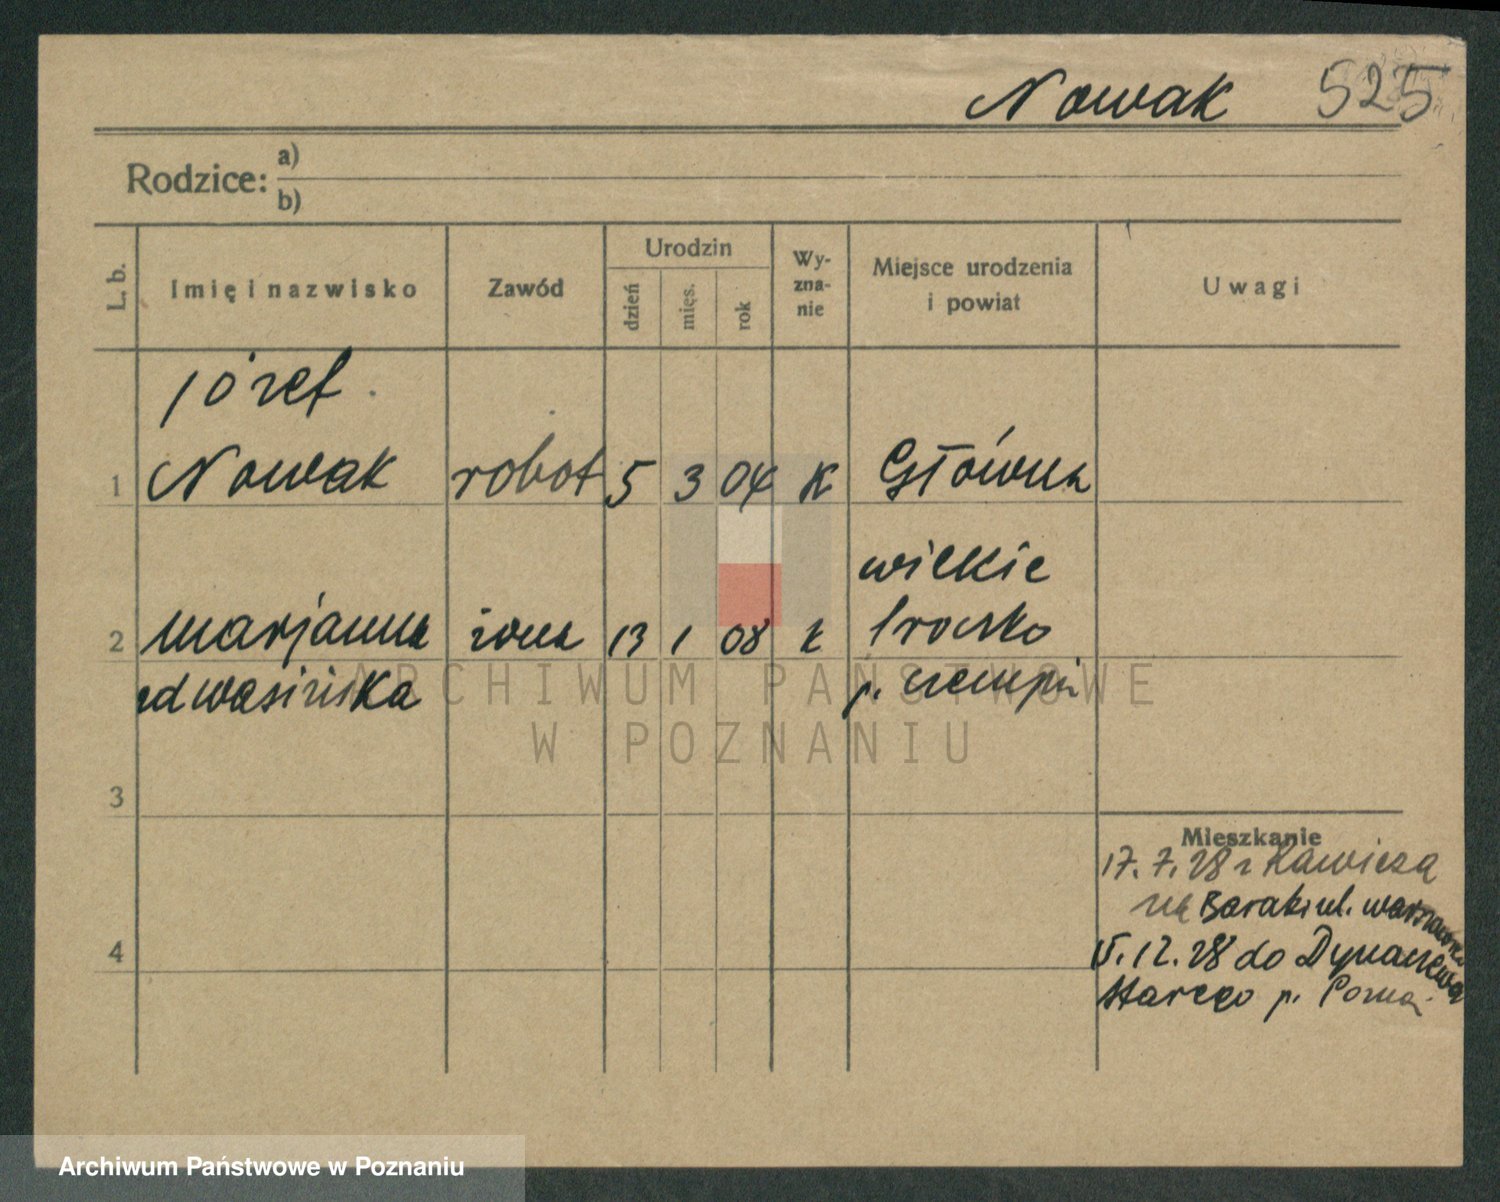 Nowak 525
Rodzice: a)
b)
L. b.
Imię i nazwisko
Zawód
Urodzin
dzień
mięs.
rok
Wy-
zna-
nie
Miejsce urodzenia
i powiat
Uwagi
Józef
1 Nowak robot 5 3 04 K Główna
wielkie
2 Marjanna żona 13 1 08 k Srocko
p. czempiń
3
4
Mieszkanie
17. 7. 28 z Rawicza
na Baraki ul. warszawska
15. 12. 28 do
Starego p. Pozna
ARCHIWUM PAŃSTWOWE
W POZNANIU
Archiwum Państwowe w Poznaniu